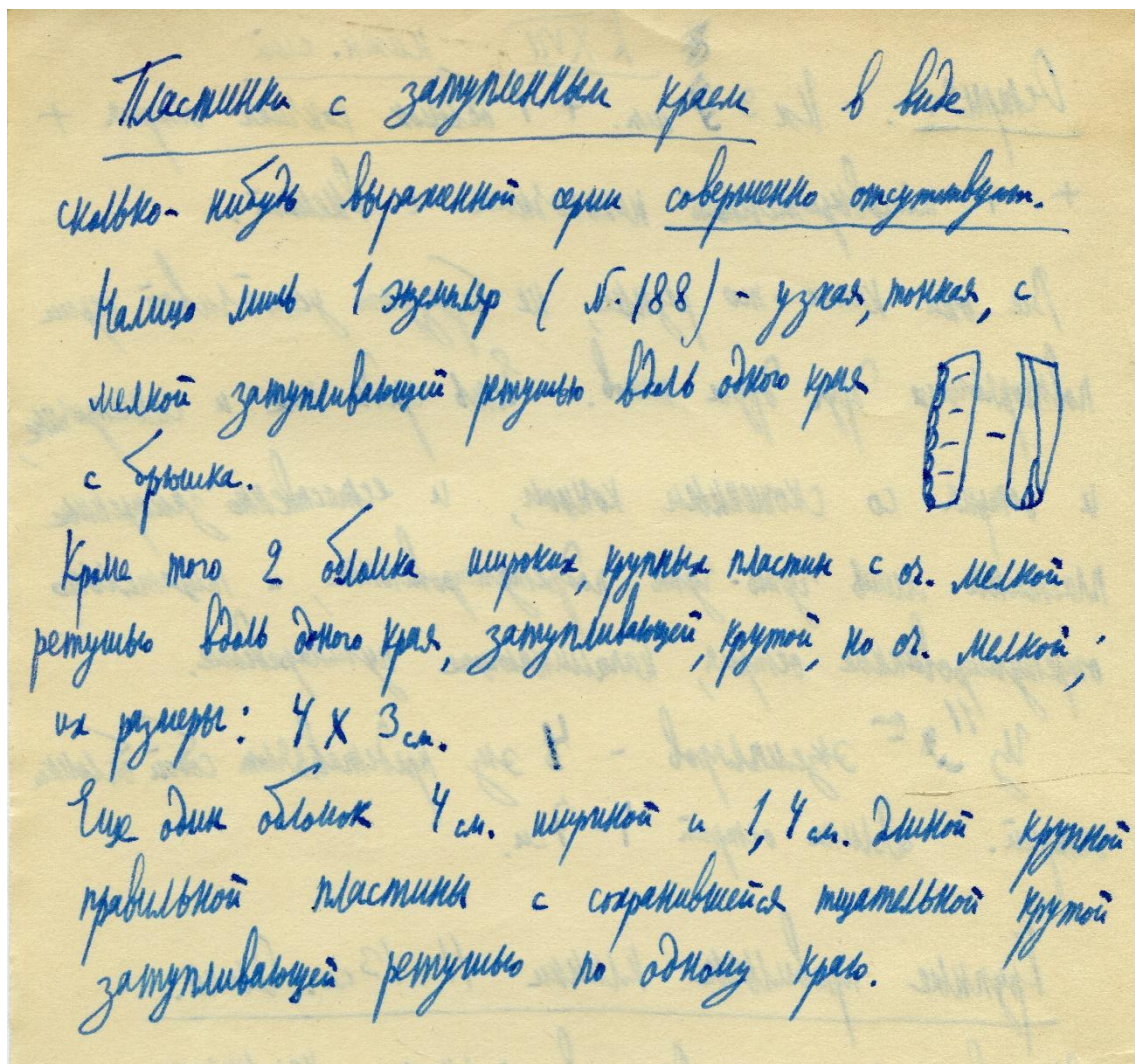 Пластинки с затупленным краем в виде
сколько-нибудь выраженной серии совершенно отсутствуют.
Налицо лишь 1 экземпляр (№ 188) узкая, тонкая, с
мелкой затупливающей ретушью вдоль одного края
с брюшка.
Кроме того 2 обломка широких, крупных пластин с оч. мелкой
ретушью вдоль одного края, затупливающей, крутой, но оч. мелкой;
их размеры: 4 X 3 см.
Еще один обломок 4 см. шириной и 1,4 см. длиной крупной
правильной пластины с сохранившейся тщательной крутой
затупливающей ретушью по одному краю.